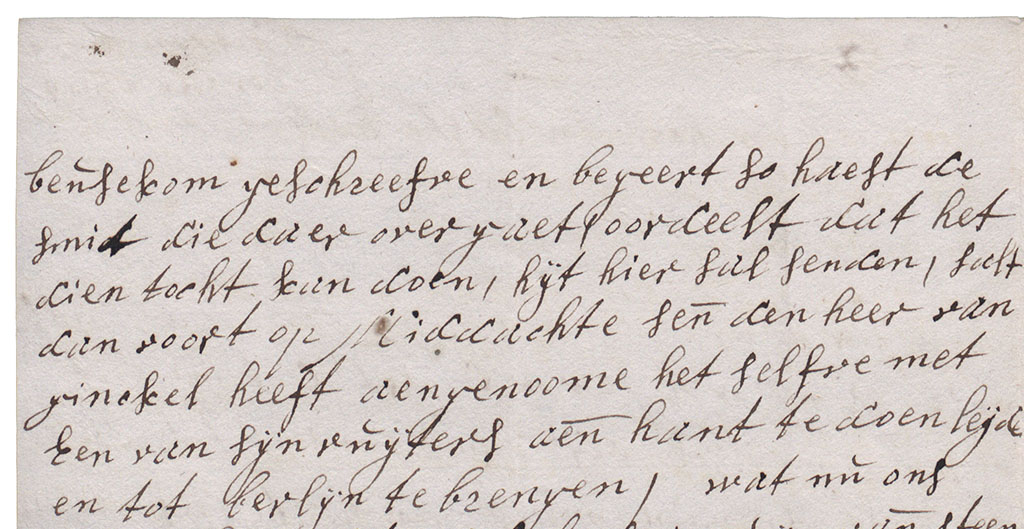 bensekom geschreefve en begeert so haest de
smid die daer over gaet oordeelt dat het
dien tocht kan doen, hÿt hier sal senden, salt
dan voort op Middachte sen̄ den heer van
ginckel heeft aengenoome het selfve met
een van sÿn ruÿters aen̄ hant te doen leÿde
en tot berlÿn te brengen, wat nu ons